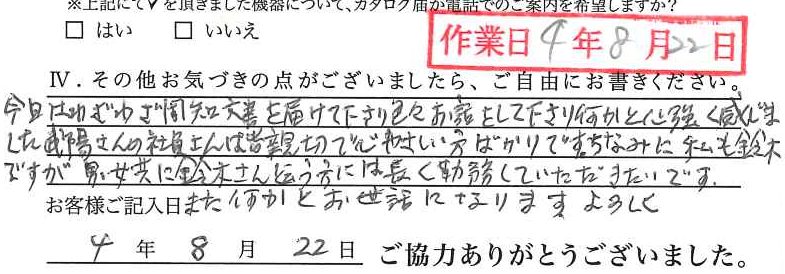 ※上記にて✓を頂きました機器について、カタログ届か電話でのご案内を希望しますか？
□ はい　□ いいえ
作業日 4年 8月 22日
Ⅳ．その他お気づきの点がございましたら、ご自由にお書きください。
今日はわざわざ周知文書を届けて下さり色々お話をして下さり何かと心強く感じま
した 陽さんの社員さんは皆親切で心やさしい方ばかりです ちなみに私も鈴木
ですが男女共に鈴木さんと云う方には長く勤務していただきたいです.
お客様ご記入日 また何かとお世話になります よろしく
4 年 8 月 22 日 ご協力ありがとうございました。